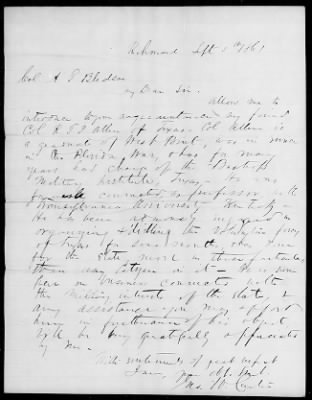 Richmond Sept 5th 1861
Col A T Bledsoe
My Dear Sir.
Allow me to
introduce to your acquaintance my friend
Col R T P Allen of Texas. Col Allen is
a graduate of West Point, was in service
in the Florida War, & has for many
years had charge of the Bastrop
Military Institute, Texas. He was
formerly connected as professor with
Transylvania University Kentucky
He has been actively engaged in
organizing & drilling the Volunteer force
of Texas for some months, & has done
for the State more in these particulars
than any citizen in it — He is now
here on business connected with
the Military interests of the State, &
any assistance you may afford
him in furtherance of his object
will be very gratefully appreciated
by me.
With sentiments of great respect
I am,